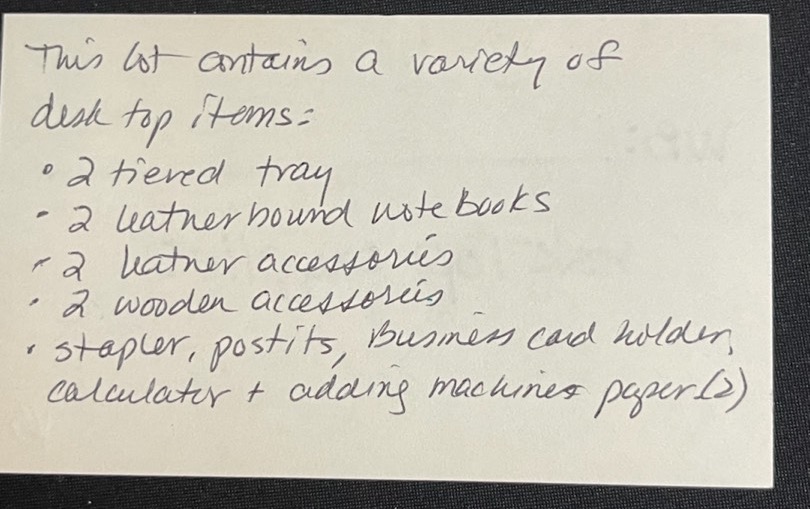 This lot contains a variety of
desk top items:
• 2 tiered tray
- 2 leather bound notebooks
- 2 leather accessories
• 2 wooden accessories
• stapler, postits, Business card holder,
calculator + adding machines paper (2)